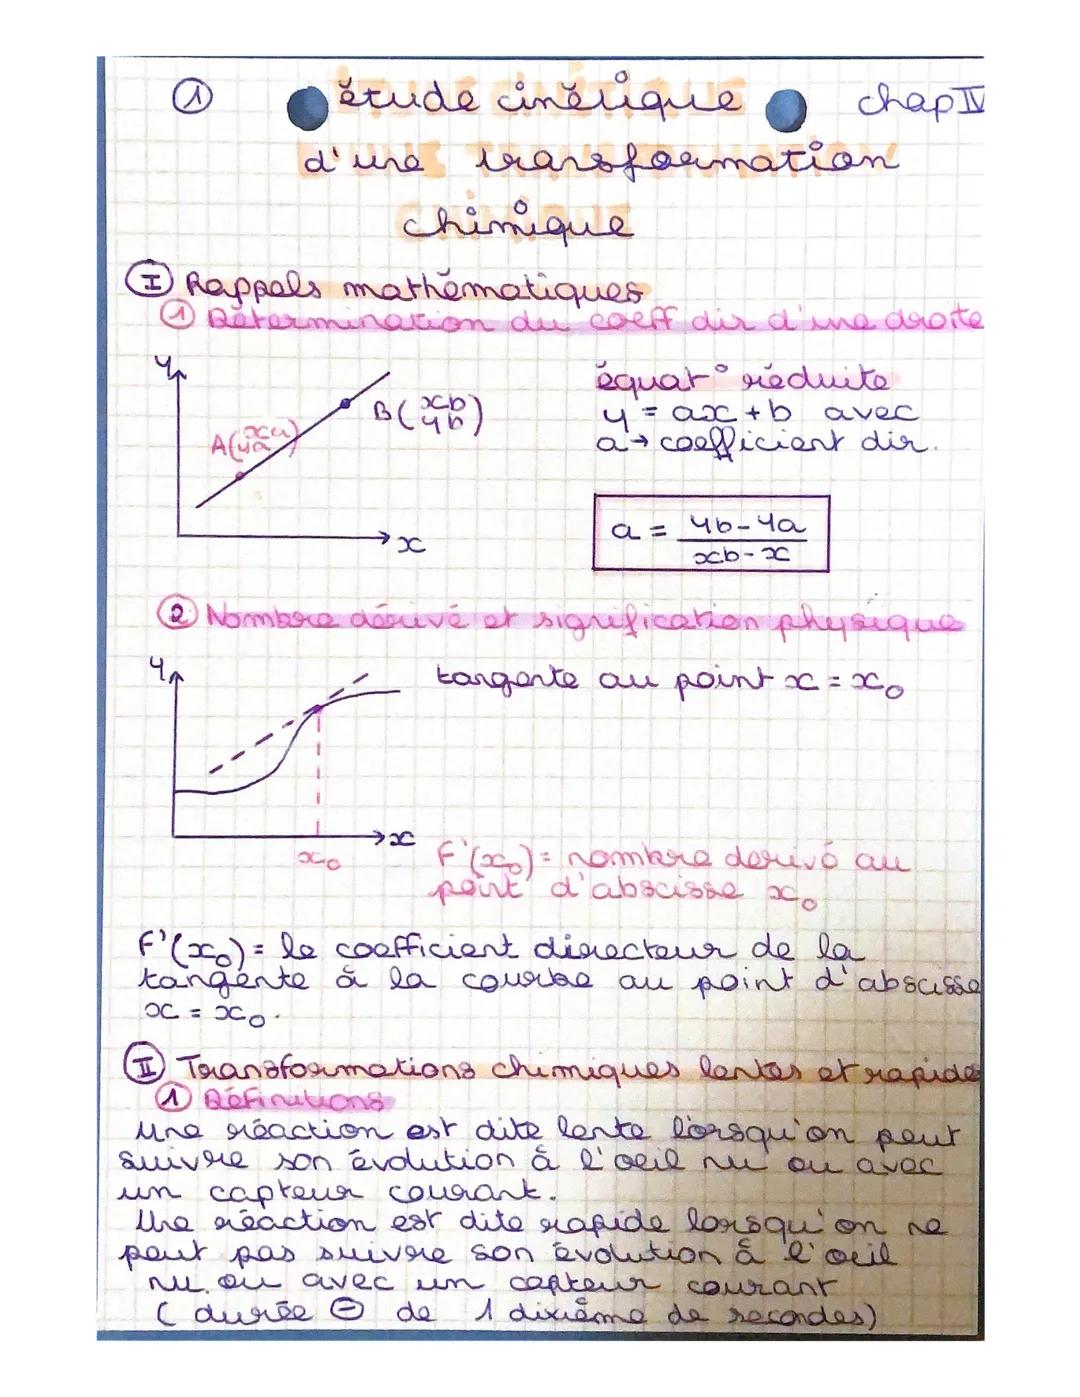 ① étude cinétique chap IV
d'une transformation
chimique
Ⅰ Rappels mathématiques
① Détermination du coeff dir d'une droite
y
A(xa ya)
B(xb yb)
x
équat° réduite
y = ax + b avec
a → coefficient dir.
a = yb - ya / xb - x
② Nombre dérivé et signification physique
y
tangente au point x = x₀
x
x₀
F'(x₀) = nombre derivé au
point d'abscisse x₀
F'(x₀) = le coefficient directeur de la
tangente à la courbe au point d'abscisse
x = x₀.
Ⅱ Transformations chimiques lentes et rapide
① Définitions
Une réaction est dite lente lorsqu'on peut
suivre son évolution à l'oeil nu ou avec
un capteur courant.
Une réaction est dite rapide lorsqu'on ne
peut pas suivre son évolution à l'oeil
nu ou avec un capteur courant
(durée ⊖ de 1 dixième de secondes)